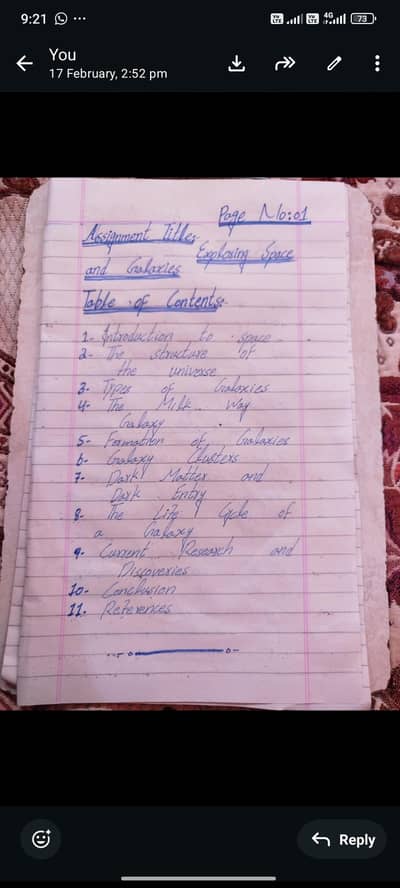 9:21
4G
73
You
17 February, 2:52 pm
Page No:01
Assignment Title:
Exploring Space
and Galaxies
Table of Contents:-
1- Introduction to space
2- The structure of
the universe
3- Types of Galaxies
4- The Milk Way
Galaxy
5- Formation of Galaxies
6- Galaxy Clusters
7- Dark Matter and
Dark Entry
8- The Life Cycle of
a Galaxy
9- Current Research and
Discoveries
10- Conclusion
11. References
Reply